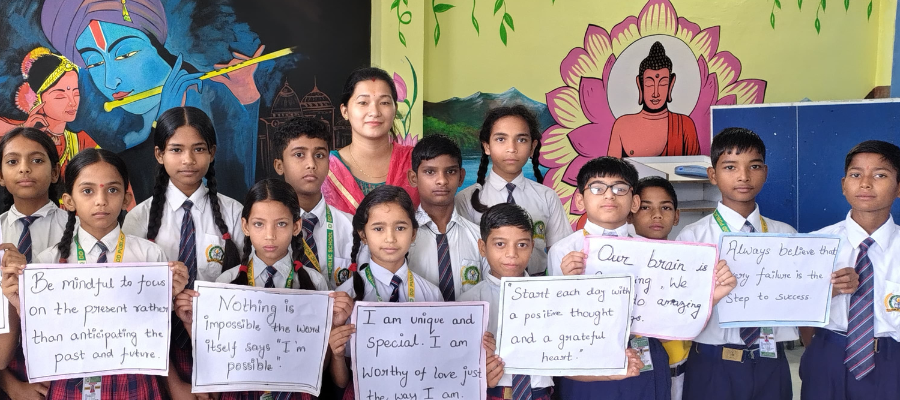 Be mindful to focus
on the present rather
than anticipating the
past and future.
Nothing is
impossible the word
itself says "I'm
possible."
I am unique and
Special. I am
Worthy of love just
the way I am.
"Start each day with
a positive thought
and a grateful
heart."
Our brain is
We
to amazing
Always believe that
failure is the
Step to success